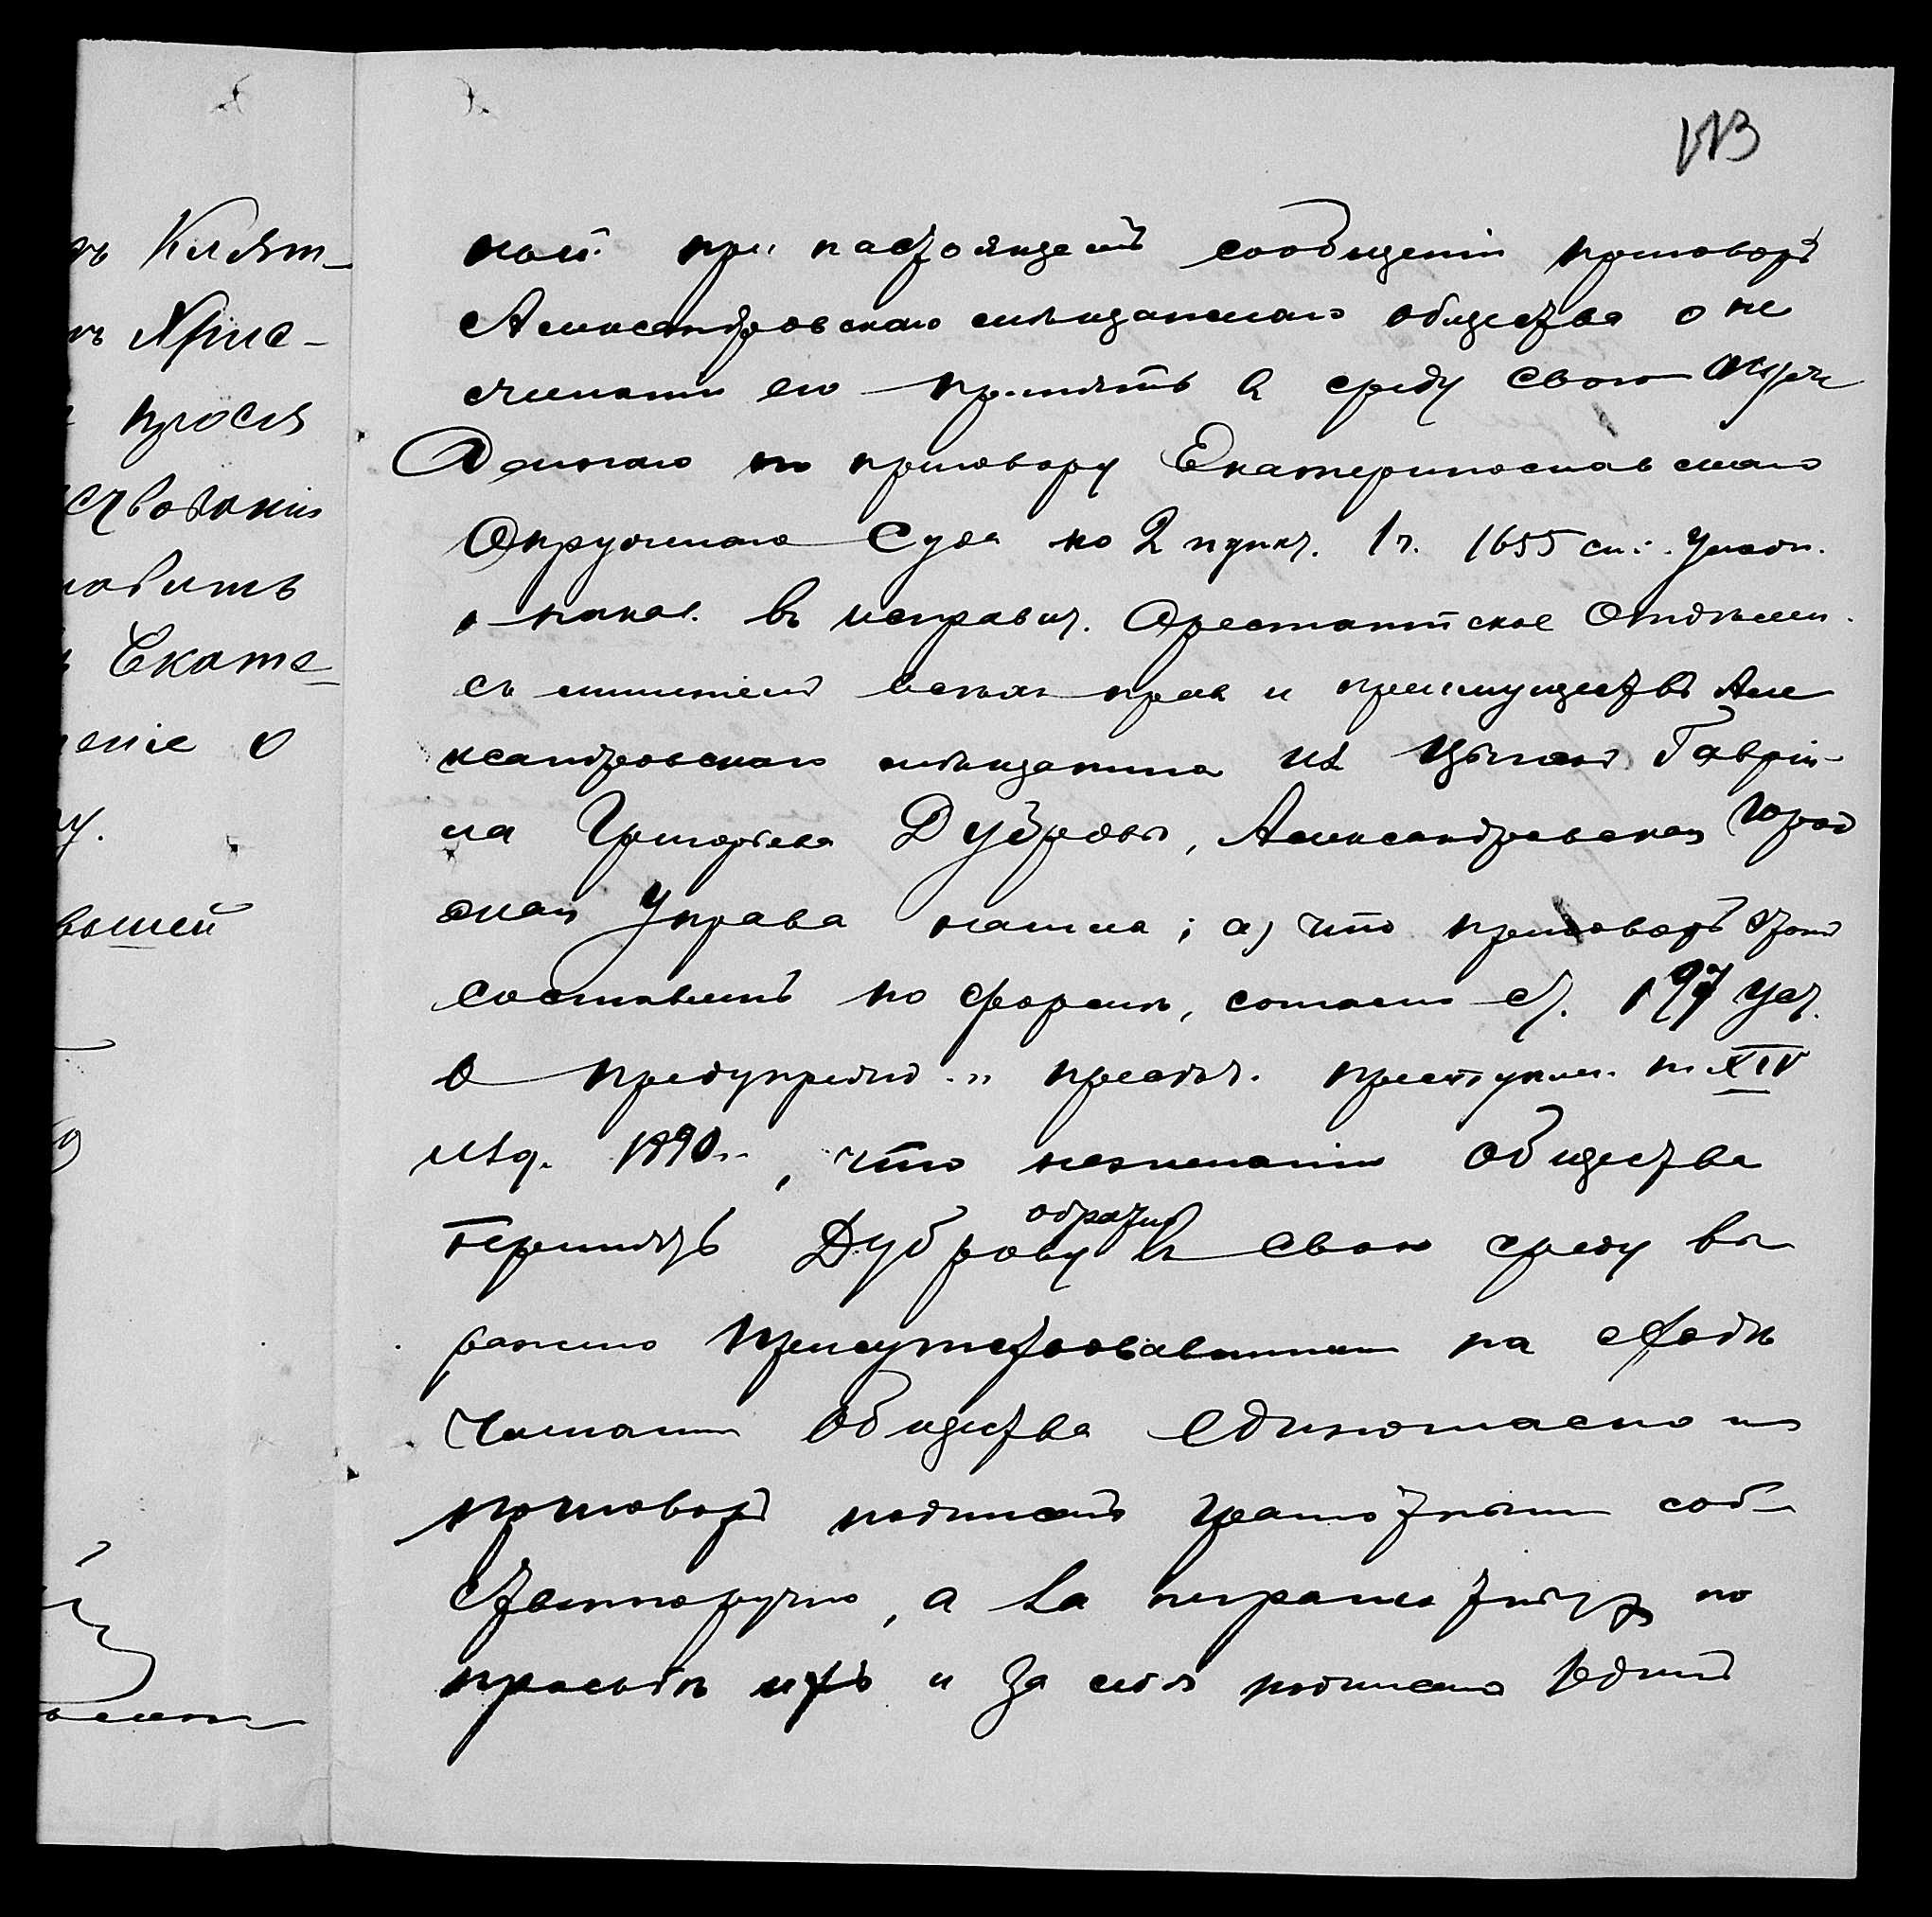 113
ный при настоящемъ сообщеніи приговоръ
Александровскаго мѣщанскаго общества о не
желаніи его принять въ среду свою осуж
деннаго по приговору Екатеринославскаго
Окружнаго Суда по 2 пункт. 1 ч. 1655 ст. Улож.
о наказ. въ исправит. Арестантское отдѣлен.
съ лишеніемъ всѣхъ правъ и преимуществъ Але
ксандровскаго мѣщанина изъ Цыганъ Гаврі
ла Григорьева Дуброва, Александровская Город
ская Управа нашла; а) что приговоръ этотъ
составленъ по формѣ, согласно ст. 197 Уст.
о предупрежд. и пресѣч. преступлен. т. XIV
изд. 1890 г., что нежеланіе Общества
принять Дуброву обратно въ свою среду вы
ражено присутствовавшими на сходѣ
членами Общества единогласно и
приговоръ подписанъ грамотными соб
ственноручно, а за неграмотныхъ по
просьбѣ ихъ и за себя подписано
въ Клят-
Хрис-
прося
Екате
еніе о